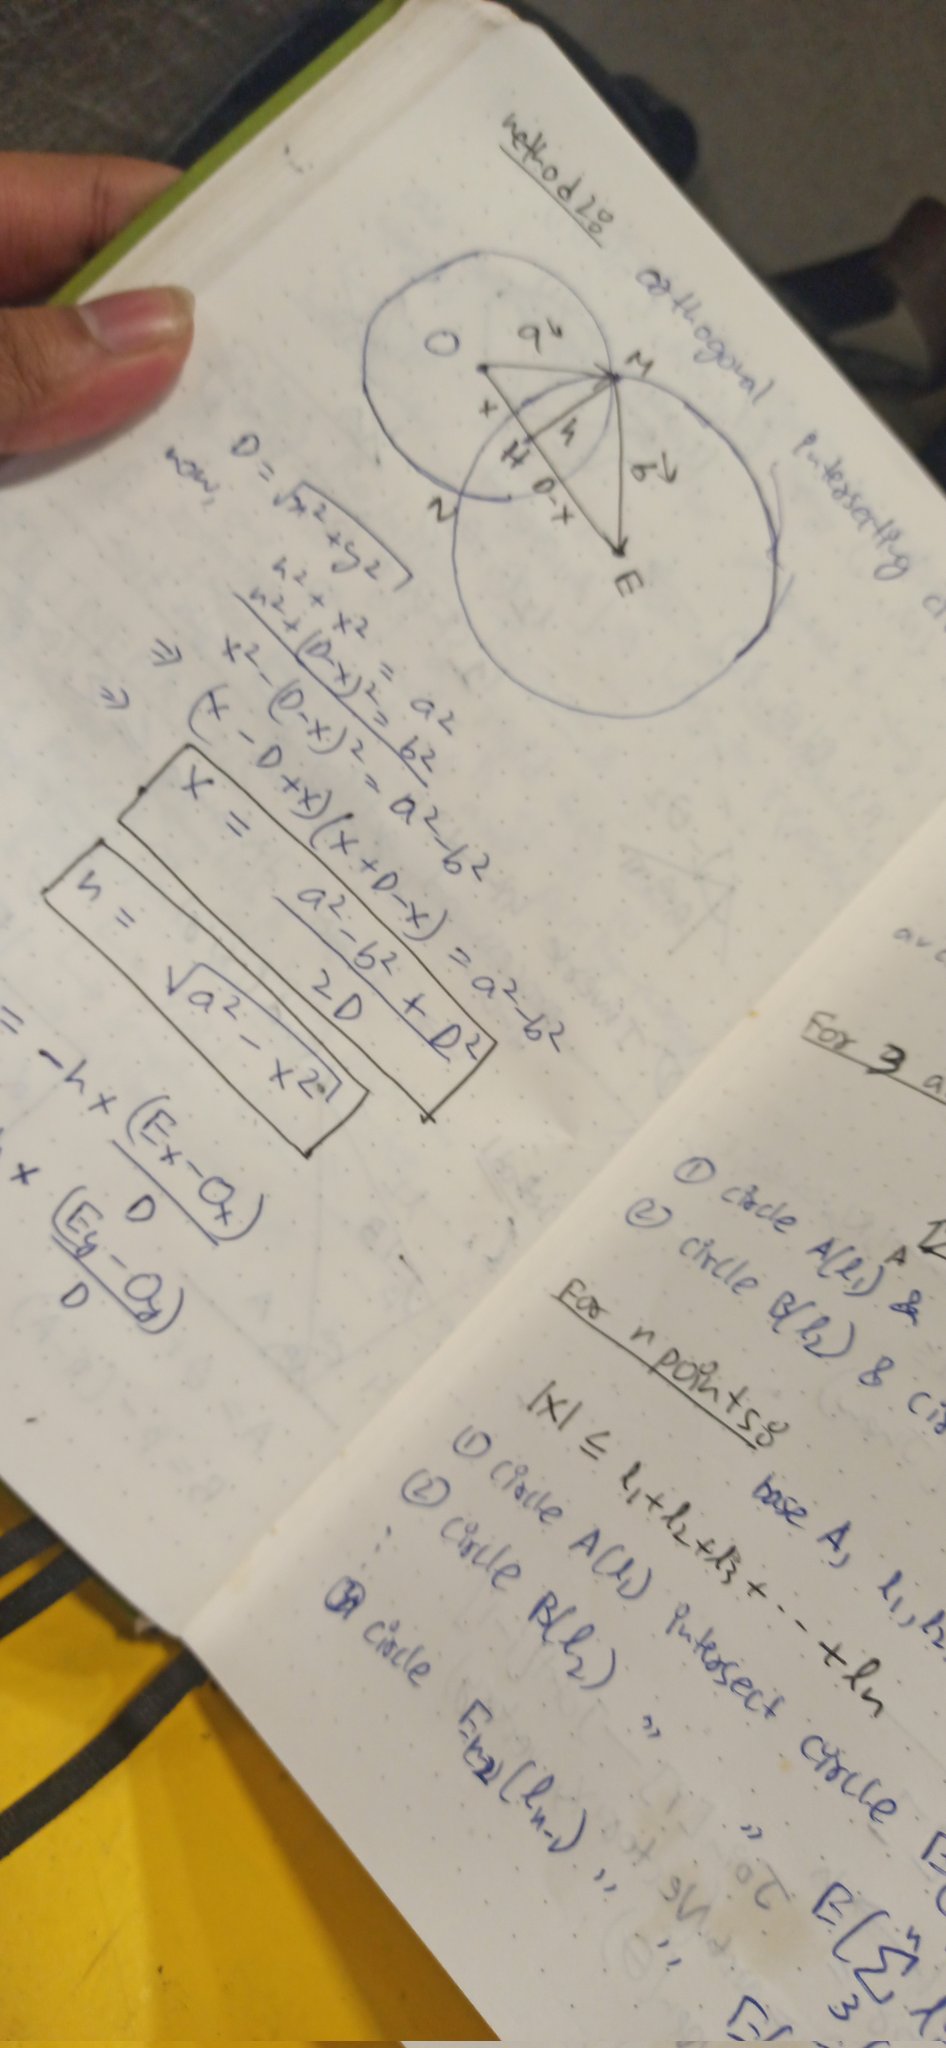 method 2:
orthogonal intersecting
O
a⃗
M
x
h
H
b⃗
D-x
N
E
D = √x² + y²
now,
h² + x² = a²
h² + (D-x)² = b²
⇒ x² - (D-x)² = a² - b²
⇒ (x - D + x)(x + D - x) = a² - b²
x = a² - b² + D² / 2D
h = √a² - x²
= -h × (Ex - Ox) / D
× (Ey - Oy) / D
For 3
① circle A(l₁) &
② circle B(l₂) &
A
For n points:
base A, l₁, l₂
|x| ≤ l₁ + l₂ + l₃ + ... + lₙ
① circle A(l₁) intersect circle
② circle B(l₂) " "
⋮
circle Eₙ₋₂(lₙ₋₁) " "
E(∑ⁿ₃